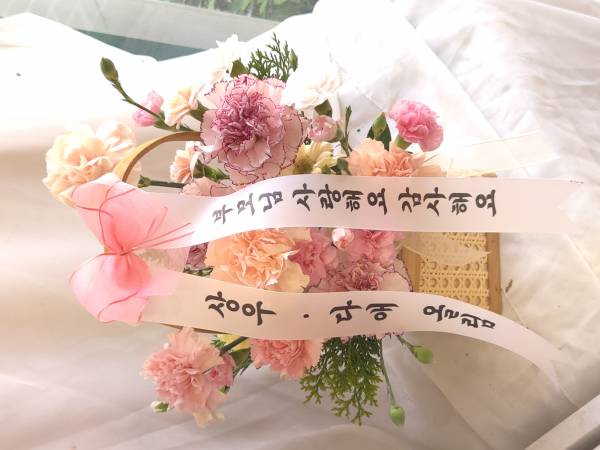 부모님 사랑해요 감사해요
상우 · 다애 올림